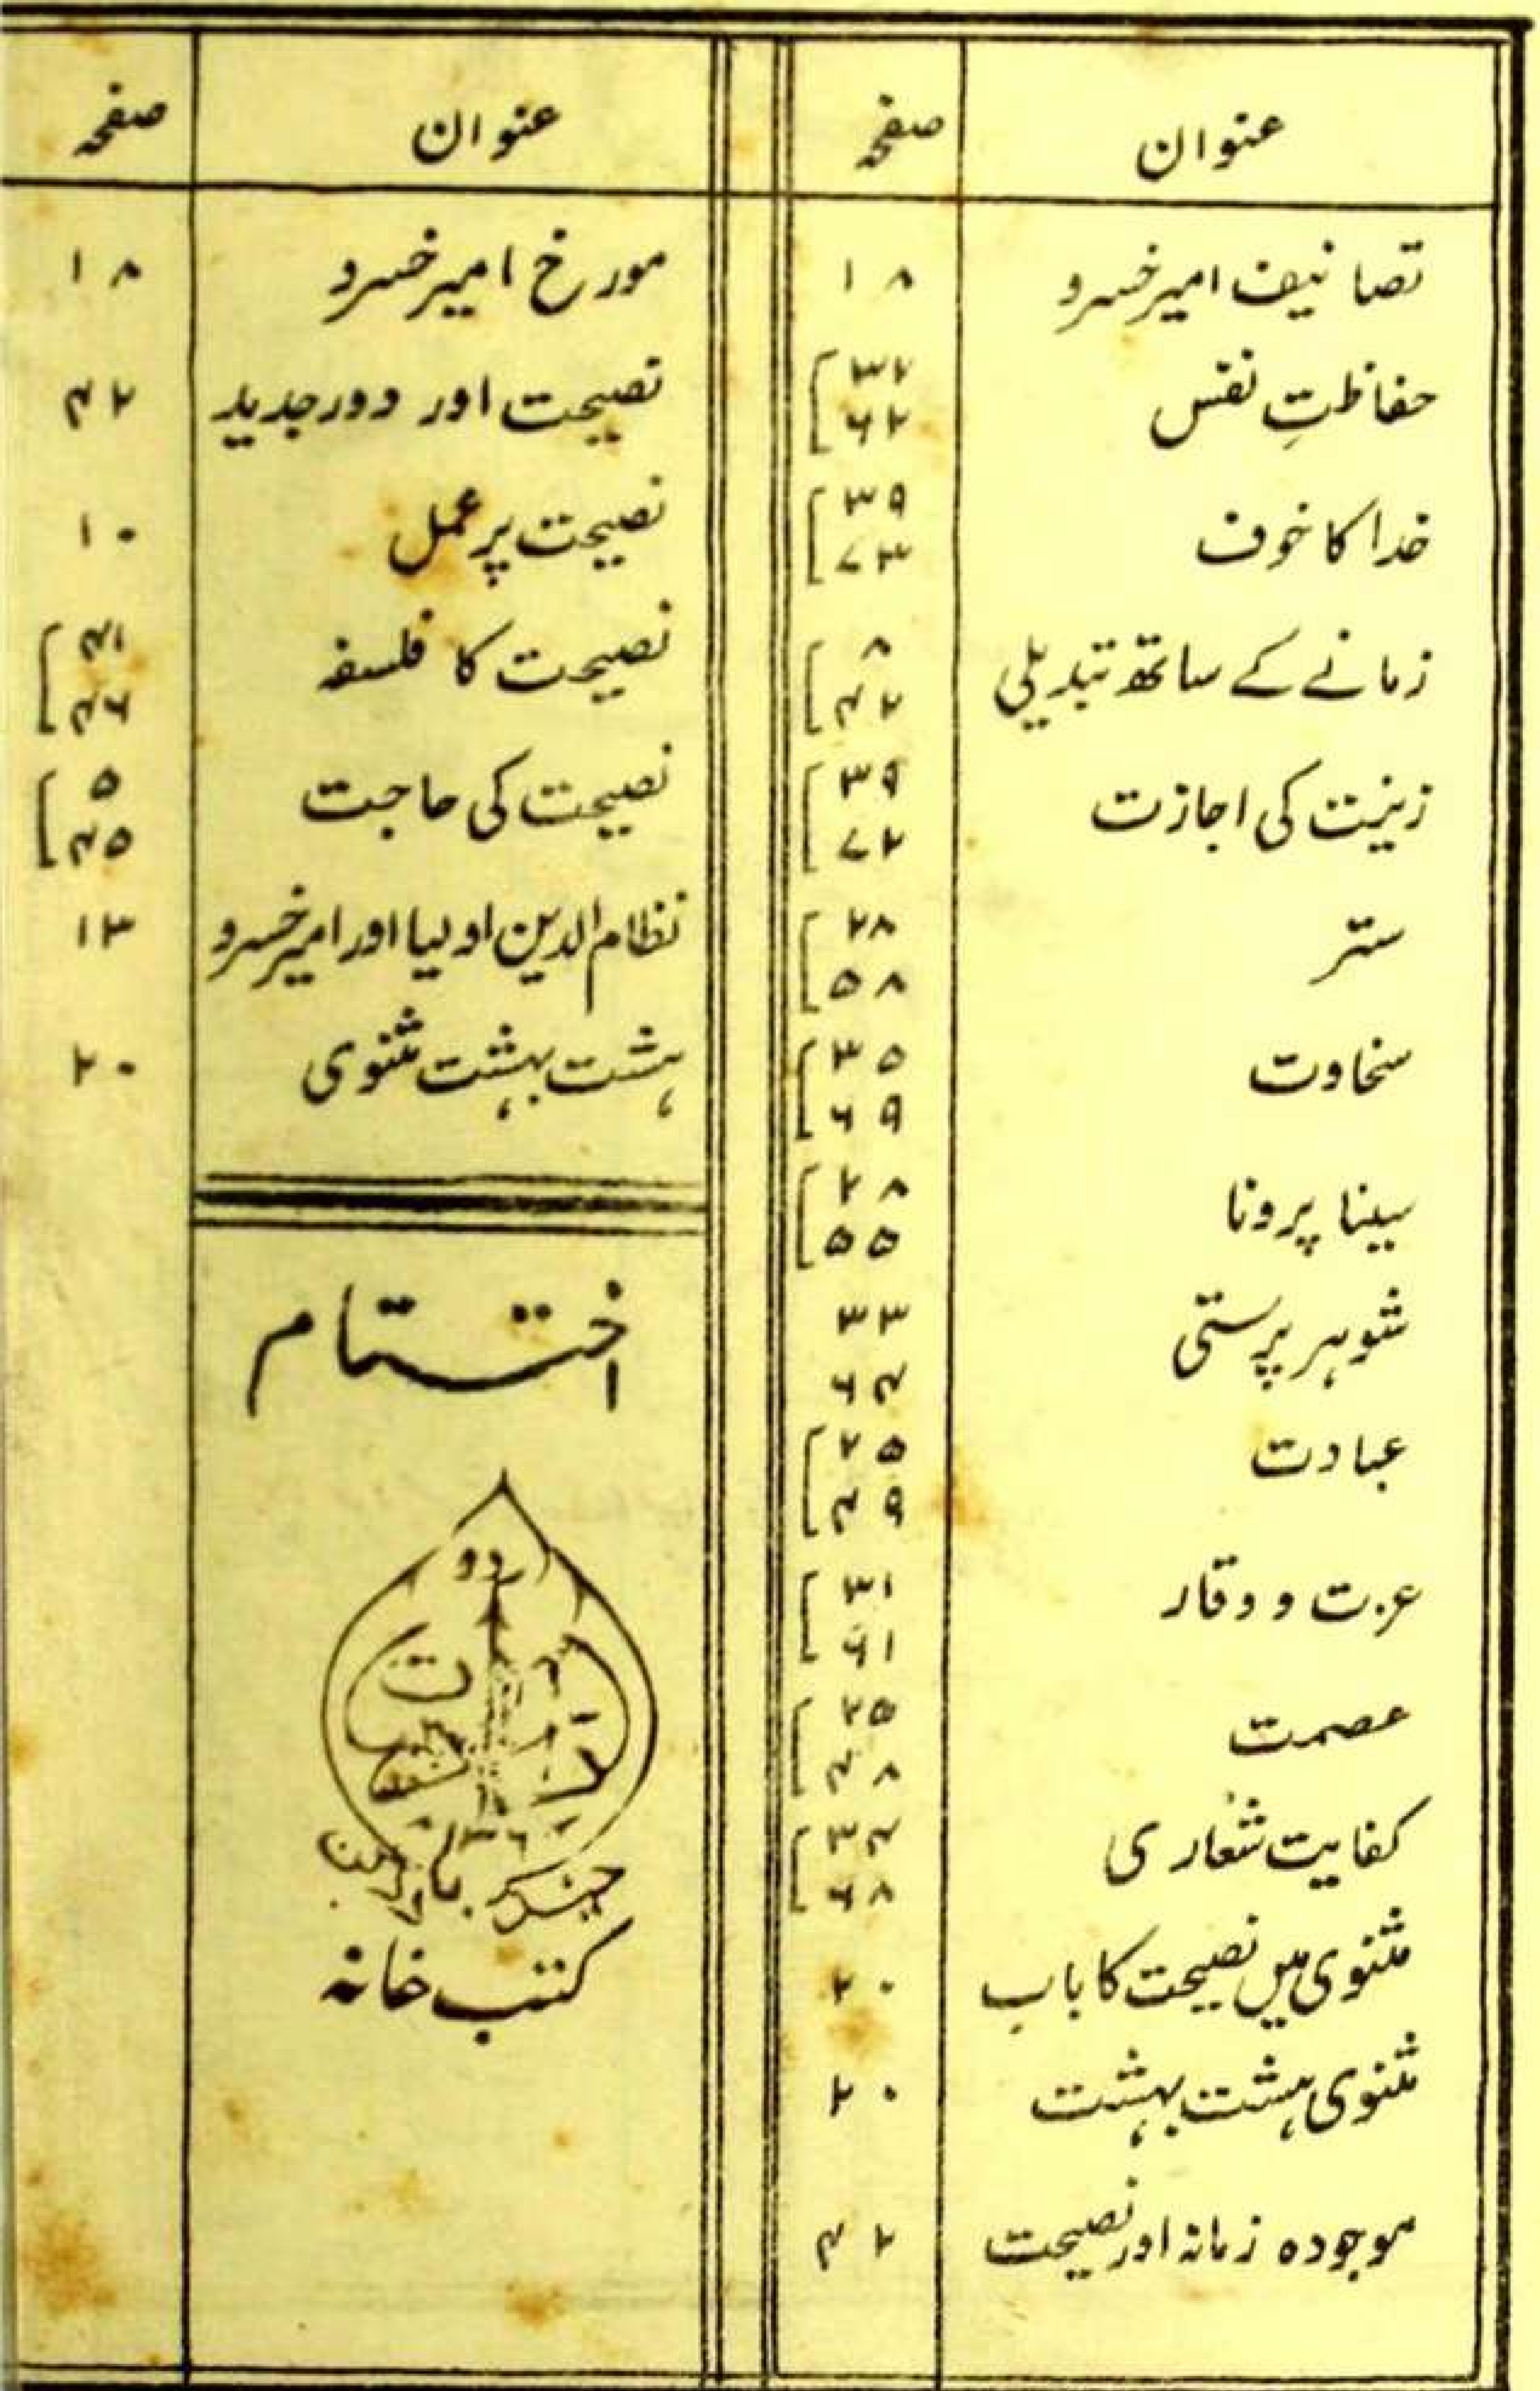 عنوان صفحہ
تصانیف امیر خسرو ۱۸
حفاظتِ نفس ۳۲
۶۲
خدا کا خوف ۳۹
۷۳
زمانے کے ساتھ تبدیلی ۸
۴۲
زینت کی اجازت ۳۹
۷۲
ستر ۲۸
۵۸
سخاوت ۳۵
۶۹
سینا پرونا ۲۸
۵۵
شوہر پرستی ۳۳
۶۴
عبادت ۲۵
۴۹
عزت و وقار ۳۱
۶۱
عصمت ۲۵
۴۸
کفایت شعاری ۳۴
۶۸
مثنوی میں نصیحت کا باب ۲۰
مثنوی ہشت بہشت ۲۰
موجودہ زمانہ اور نصیحت ۴۲
عنوان صفحہ
مورخ امیر خسرو ۱۸
نصیحت اور دور جدید ۴۲
نصیحت پر عمل ۱۰
نصیحت کا فلسفہ ۴۱
۴۶
نصیحت کی حاجت ۵
۴۵
نظام الدین اولیا اور امیر خسرو ۱۳
ہشت بہشت مثنوی ۲۰
اختتام
اردو
کتب خانہ